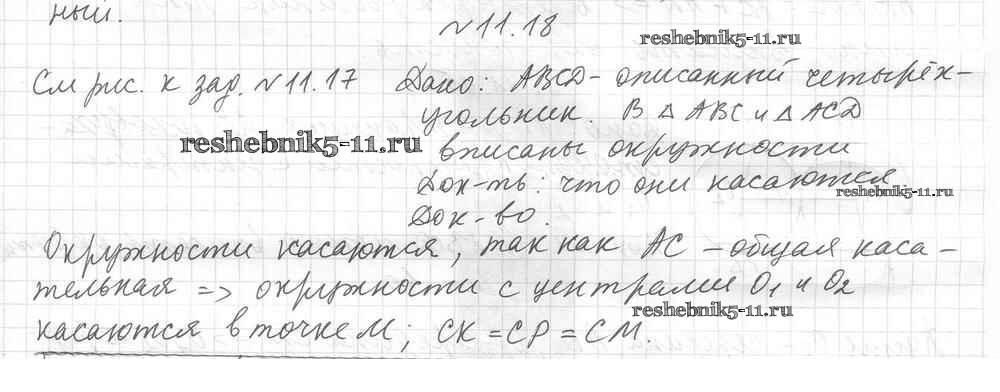 ный.
№11.18
reshebnik5-11.ru
См рис. к зад. №11.17 Дано: ABCD - описанный четырёх-
угольник. В △ ABC и △ ACD
reshebnik5-11.ru
вписаны окружности
Док-ть: что они касаются
reshebnik5-11.ru
Док-во.
Окружности касаются, так как AC - общая каса-
тельная => окружности с центрами O1 и O2
reshebnik5-11.ru
касаются в точке M; CK = CP = CM.